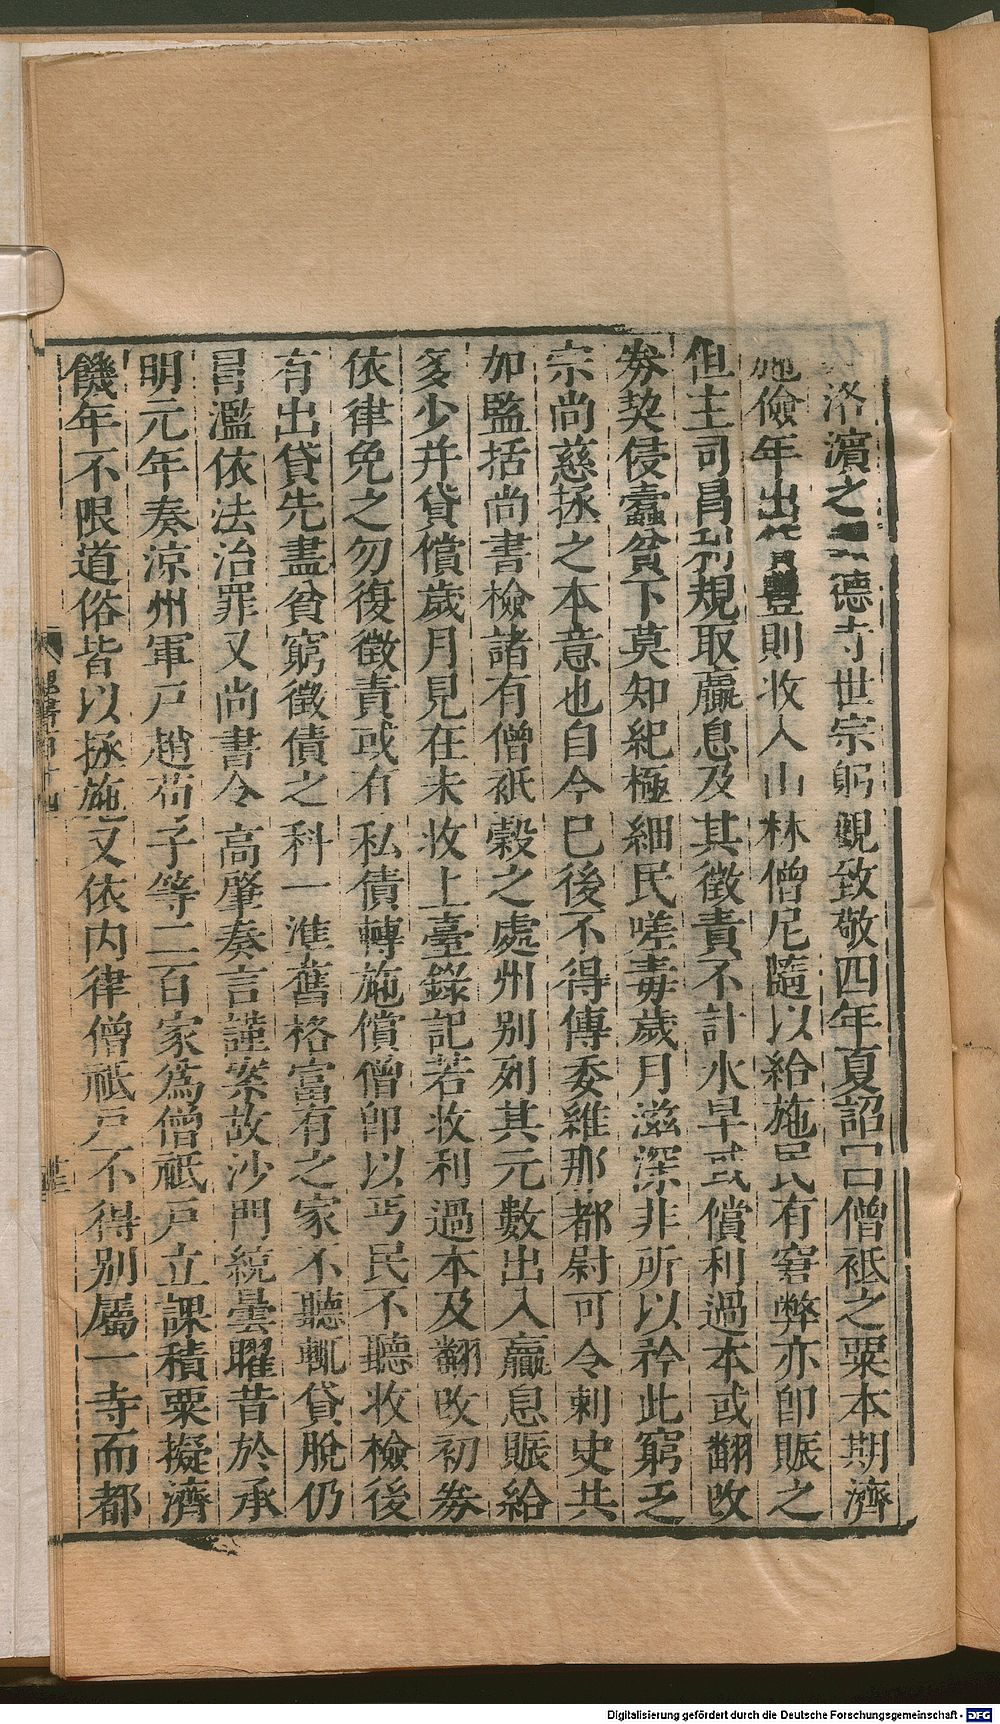 洛濱之德寺世宗躬觀致敬四年夏詔曰僧祗之粟本期濟
施儉年出豐則收入山林僧尼隨以給施民有窘弊亦即賑之
但主司冒利規取贏息及其徵責不計水旱或償利過本或翻改
券契侵蠹貧下莫知紀極細民嗟毒歲月滋深非所以矜此窮乏
宗尚慈拯之本意也自今已後不得傳委維那都尉可令刺史共
加監括尚書檢諸有僧祇穀之處州別列其元數出入贏息賑給
多少并貸償歲月見在未收上臺錄記若收利過本及翻改初券
依律免之勿復徵責或有私債轉施償僧即以丐民不聽收檢後
有出貸先盡貧窮徵債之科一準舊格富有之家不聽輒貸脫仍
冒濫依法治罪又尚書令高肇奏言謹案故沙門統曇曜昔於承
明元年奏涼州軍戶趙苟子等二百家為僧祗戶立課積粟擬濟
饑年不限道俗皆以拯施又依内律僧祗戶不得別屬一寺而都
Digitalisierung gefördert durch die Deutsche Forschungsgemeinschaft - DFG